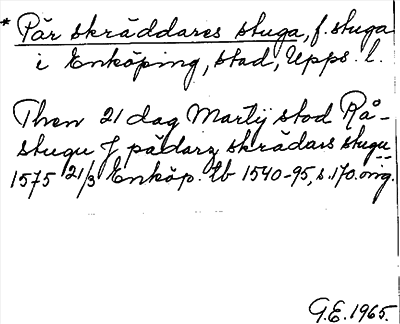 * Pär skräddares stuga, f. stuga
i Enköping, stad, Upps. l.
Then 21 dag Martij stod Rå-
stugu J pädarz skrädars stugu
1575 21/3 Enköp. tb 1540-95, s. 170. orig.
G.E. 1965.